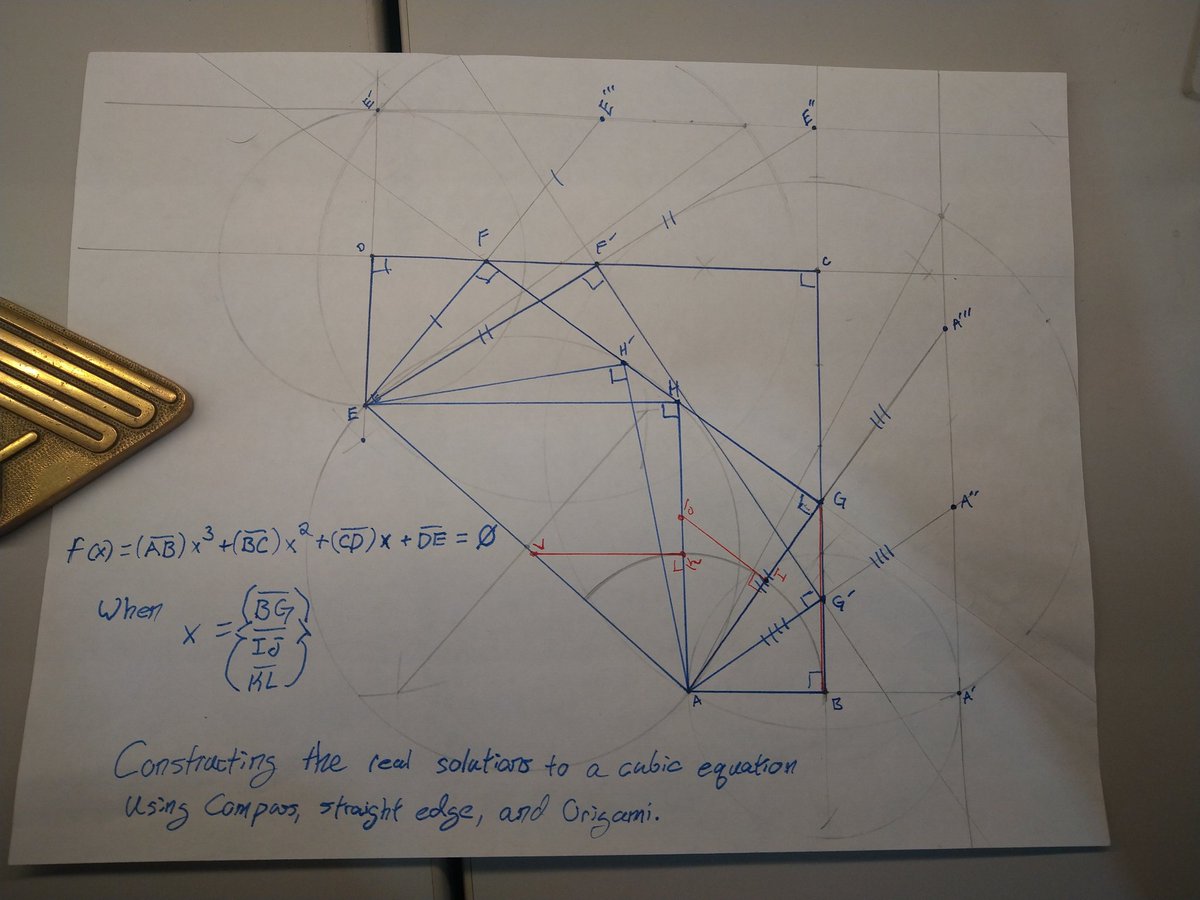 E' E''' E''
D F F' C
A'''
H'
E H
G A''
J
f(x) = (A̅B̅)x³ + (B̅C̅)x² + (C̅D̅)x + D̅E̅ = Ø
L K I
G'
When x = { B̅G̅
I̅J̅
K̅L̅ }
A B A'
Constructing the real solutions to a cubic equation
Using Compass, straight edge, and Origami.